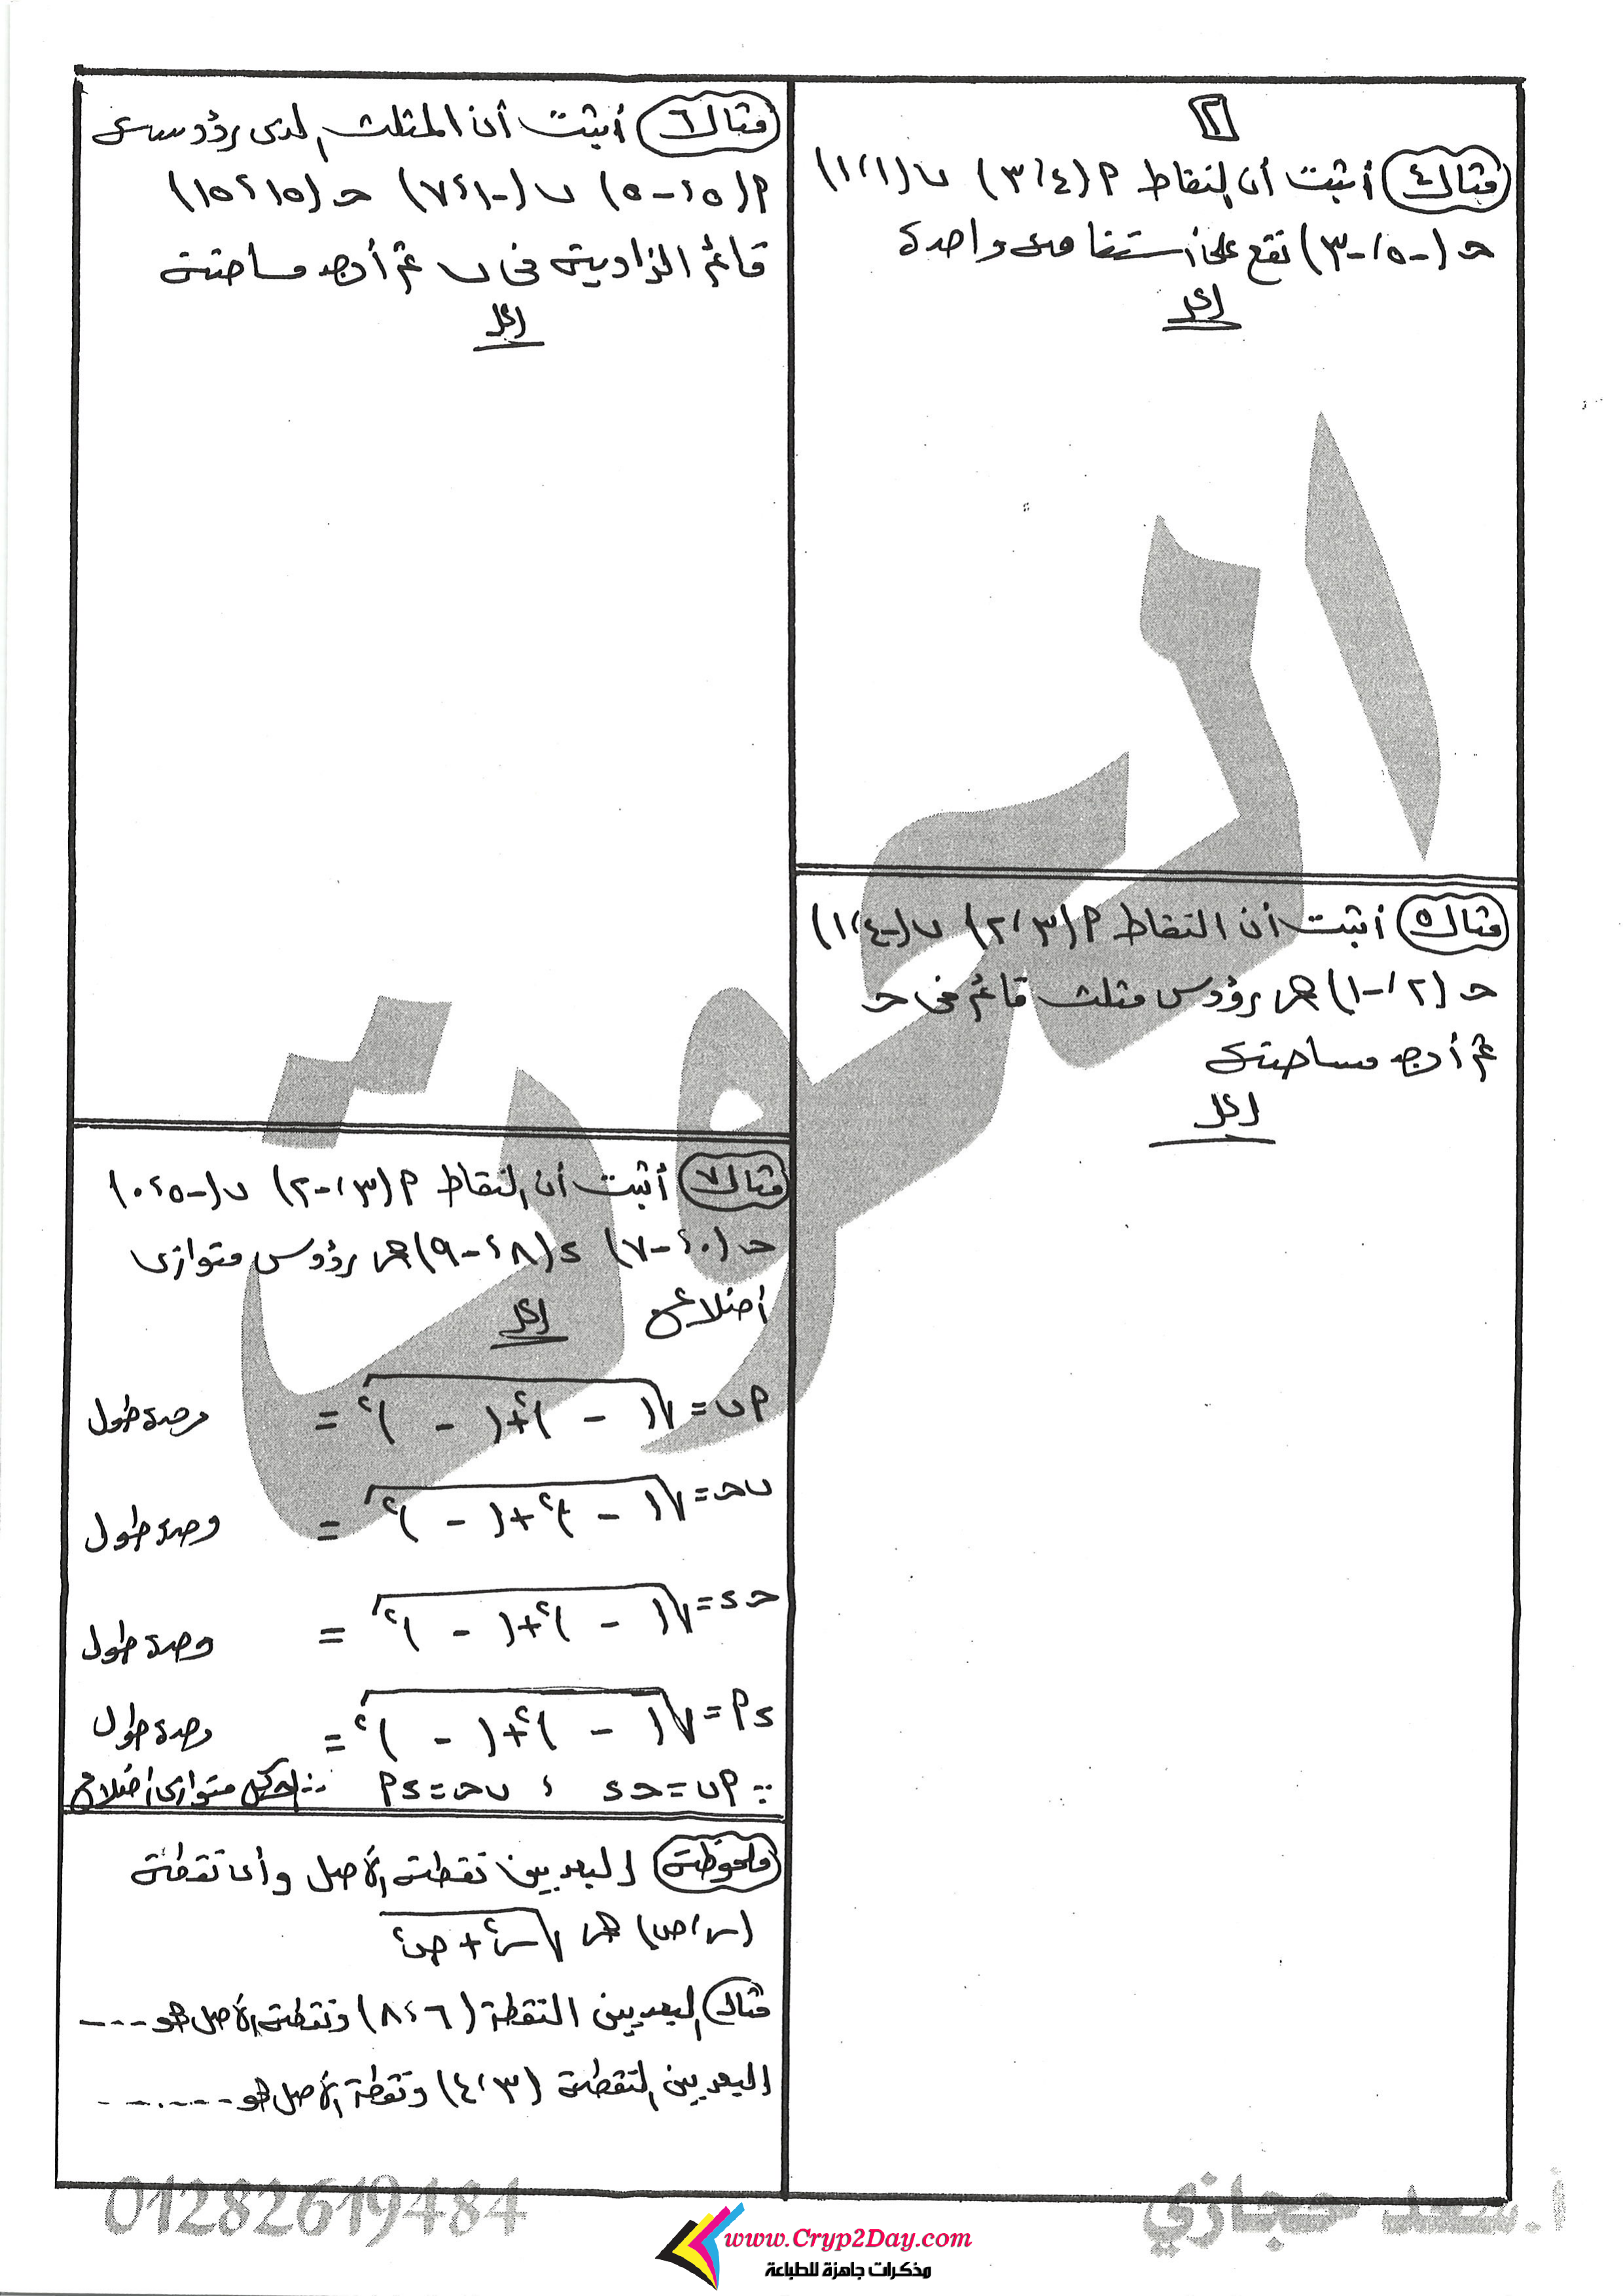 ٢
مثال ٤ أثبت أن النقاط م (٤، ٣) ب (١، ١)
حـ (-٥، -٣) تقع على استقامة واحدة
الحل
مثال ٥ أثبت أن النقاط م (٣، ٢) ب (-٤، ١)
حـ (٢، -١) هى رؤوس مثلث قائم فى حـ
ثم أوجد مساحته
الحل
مثال ٦ أثبت أن المثلث الذى رؤوسه
م (٥، -٥) ب (-١، ٧) حـ (١٥، ١٥)
قائم الزاوية فى ب ثم أوجد مساحته
الحل
مثال ٧ أثبت أن النقاط م (٣، -٢) ب (-٥، ٠)
حـ (٠، -٧) ء (٨، -٩) هى رؤوس متوازى
أضلاع
الحل
م ب = √( - )² + ( - )² = وحدة طول
ب حـ = √( - )² + ( - )² = وحدة طول
حـ ء = √( - )² + ( - )² = وحدة طول
ء م = √( - )² + ( - )² = وحدة طول
∵ م ب = حـ ء ، ب حـ = ء م ∴ الشكل متوازى أضلاع
ملحوظة البعد بين نقطة الأصل وأى نقطة
(س، ص) هى √س² + ص²
مثال البعد بين النقطة (٦، ٨) ونقطة الأصل هو ----
البعد بين النقطة (٣، ٤) ونقطة الأصل هو --------
01282619484
أ. سعد حجازي
www.Cryp2Day.com
مذكرات جاهزة للطباعة